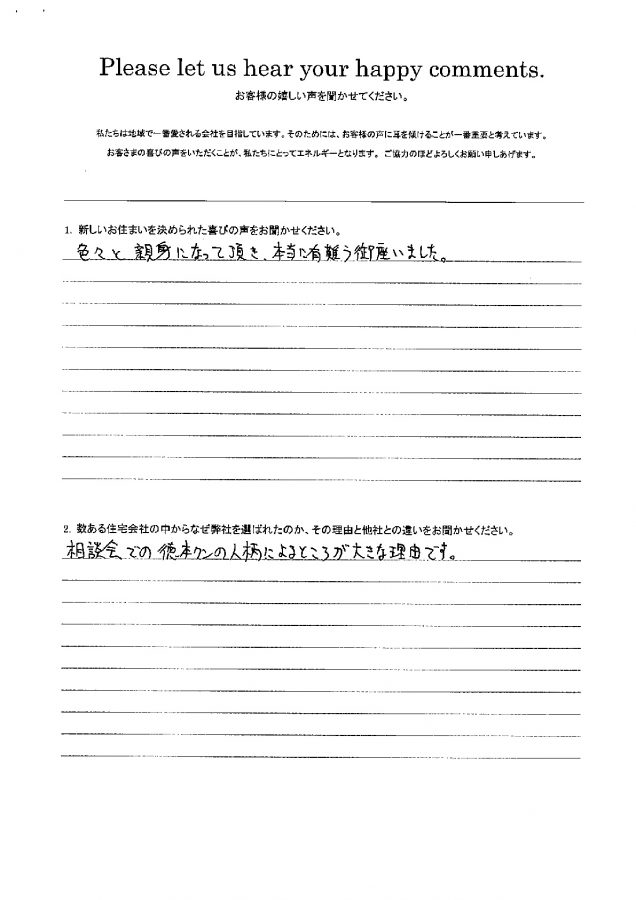 Please let us hear your happy comments.
お客様の嬉しい声を聞かせてください。
私たちは地域で一番愛される会社を目指しています。そのためには、お客様の声に耳を傾けることが一番重要と考えています。
お客さまの喜びの声をいただくことが、私たちにとってエネルギーとなります。ご協力のほどよろしくお願い申しあげます。
1. 新しいお住まいを決められた喜びの声をお聞かせください。
色々と親身になって頂き、本当に有難う御座いました。
2. 数ある住宅会社の中からなぜ弊社を選ばれたのか、その理由と他社との違いをお聞かせください。
相談会での徳本クンの人柄によるところが大きな理由です。